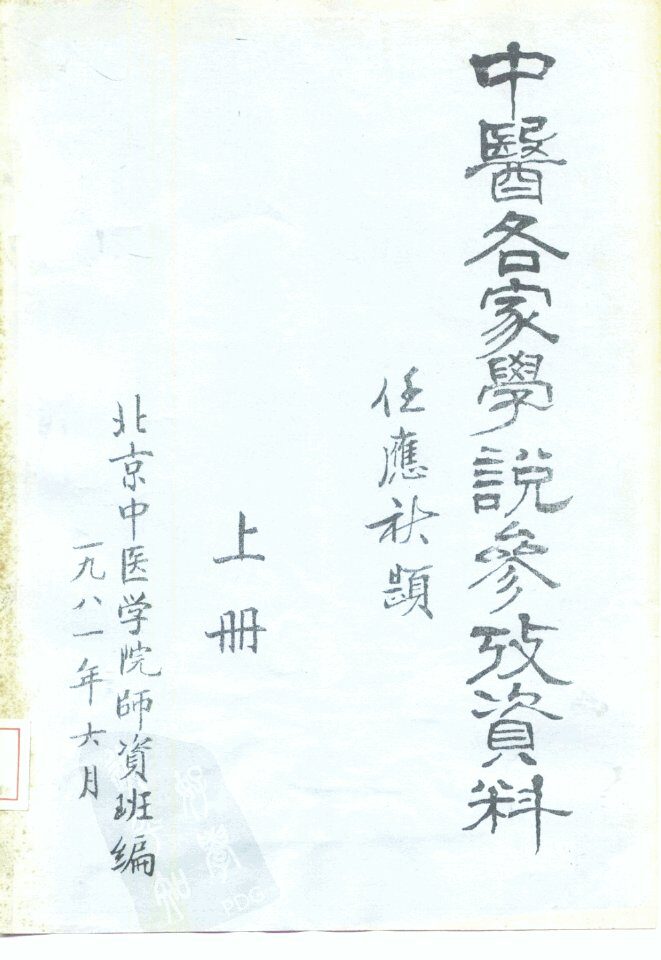 中醫各家學說參攷資料
任應秋題
上册
北京中医学院師資班編
一九八一年六月
PDG